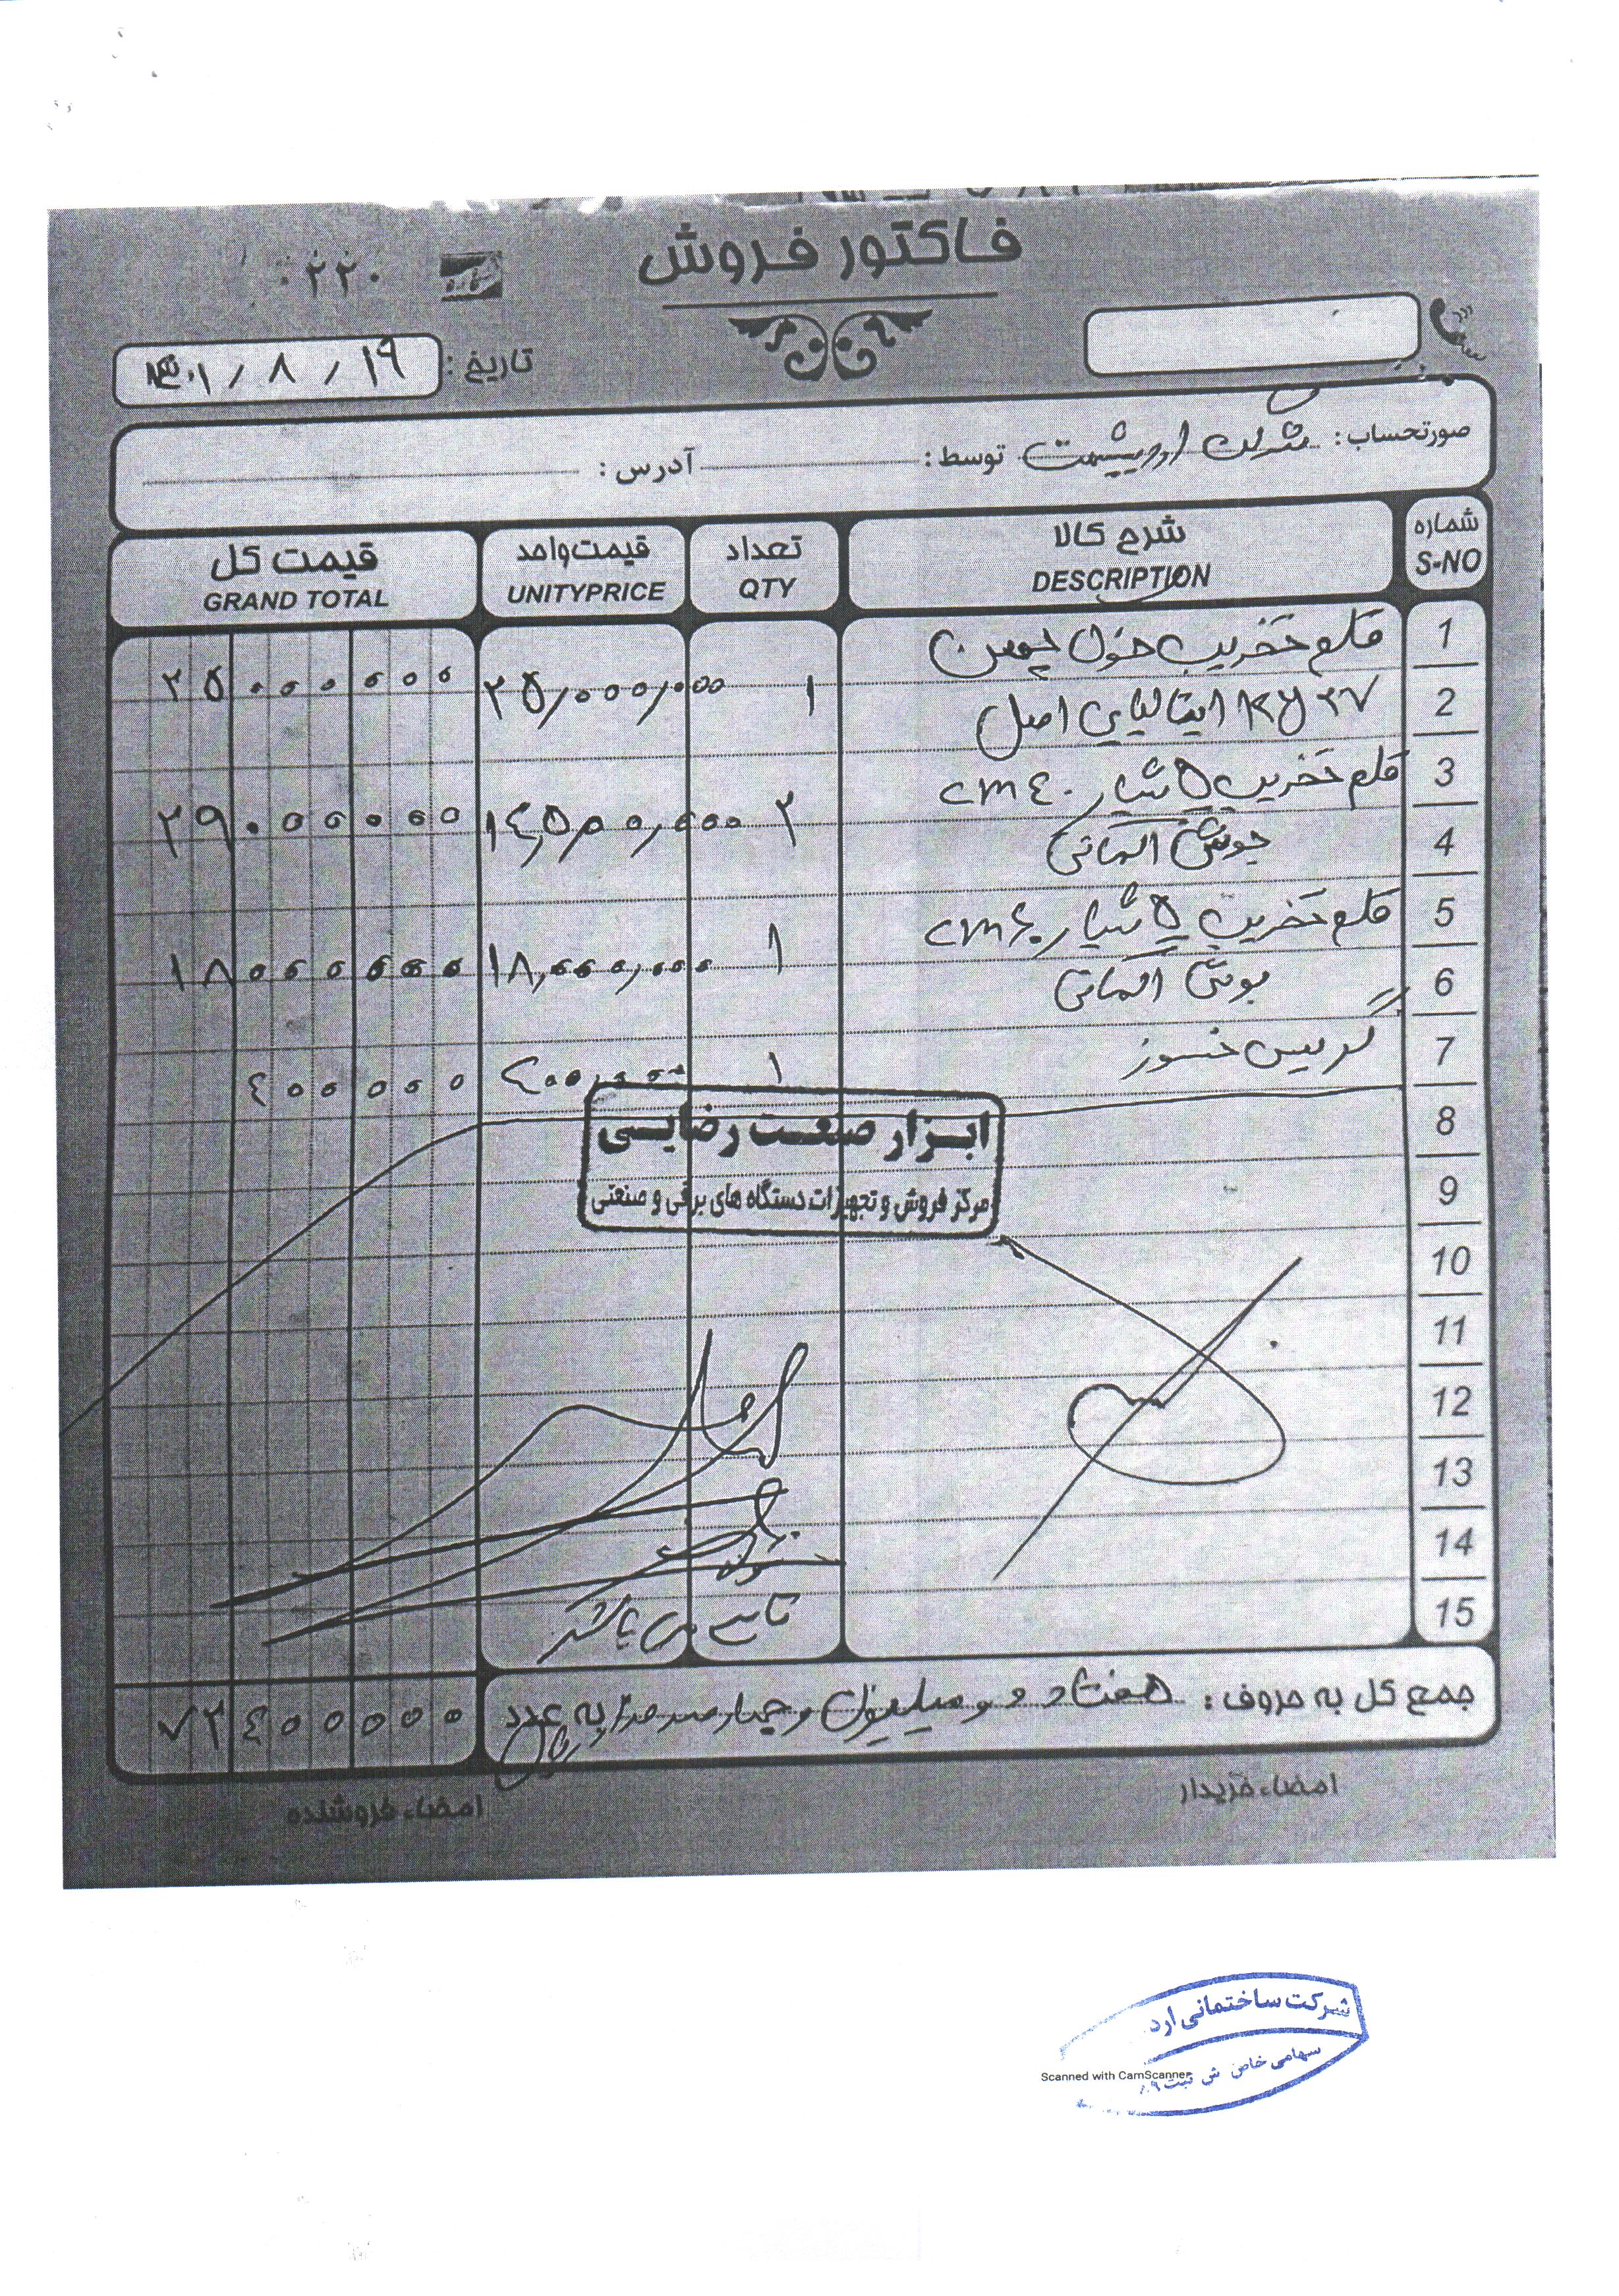 فاکتور فروش
۰۲۲۰
تاریخ: ۱۴۰۱/۸/۱۹
صورتحساب: شرکت اردیبهشت توسط: آدرس:
شماره S-NO شرح کالا DESCRIPTION تعداد QTY قیمت واحد UNITYPRICE قیمت کل GRAND TOTAL
1 قلم تخریب
2 ایتالیایی اصل ۱ ۲۵,۰۰۰,۰۰۰ ۲۵۰۰۰۰۰۰
3 قلم تخریب ۵ شیار ۴۰ cm
4 بوش آلمانی ۲ ۱۴,۵۰۰,۰۰۰ ۲۹۰۰۰۰۰۰
5 قلم تخریب ۵ شیار ۶۰ cm
6 بوش آلمانی ۱ ۱۸,۰۰۰,۰۰۰ ۱۸۰۰۰۰۰۰
7 گریس نسوز ۱ ۴۰۰,۰۰۰ ۴۰۰۰۰۰
8
ابزار صنعت رضایی
9
مرکز فروش و تجهیزات دستگاه های برقی و صنعتی
10
11
12
13
14
15
می باشد
جمع کل به حروف: هفتاد و دو میلیون و چهارصد هزار ریال به عدد ۷۲۴۰۰۰۰۰
امضاء خریدار امضاء فروشنده
شرکت ساختمانی ارد
سهامی خاص ش ثبت
Scanned with CamScanner